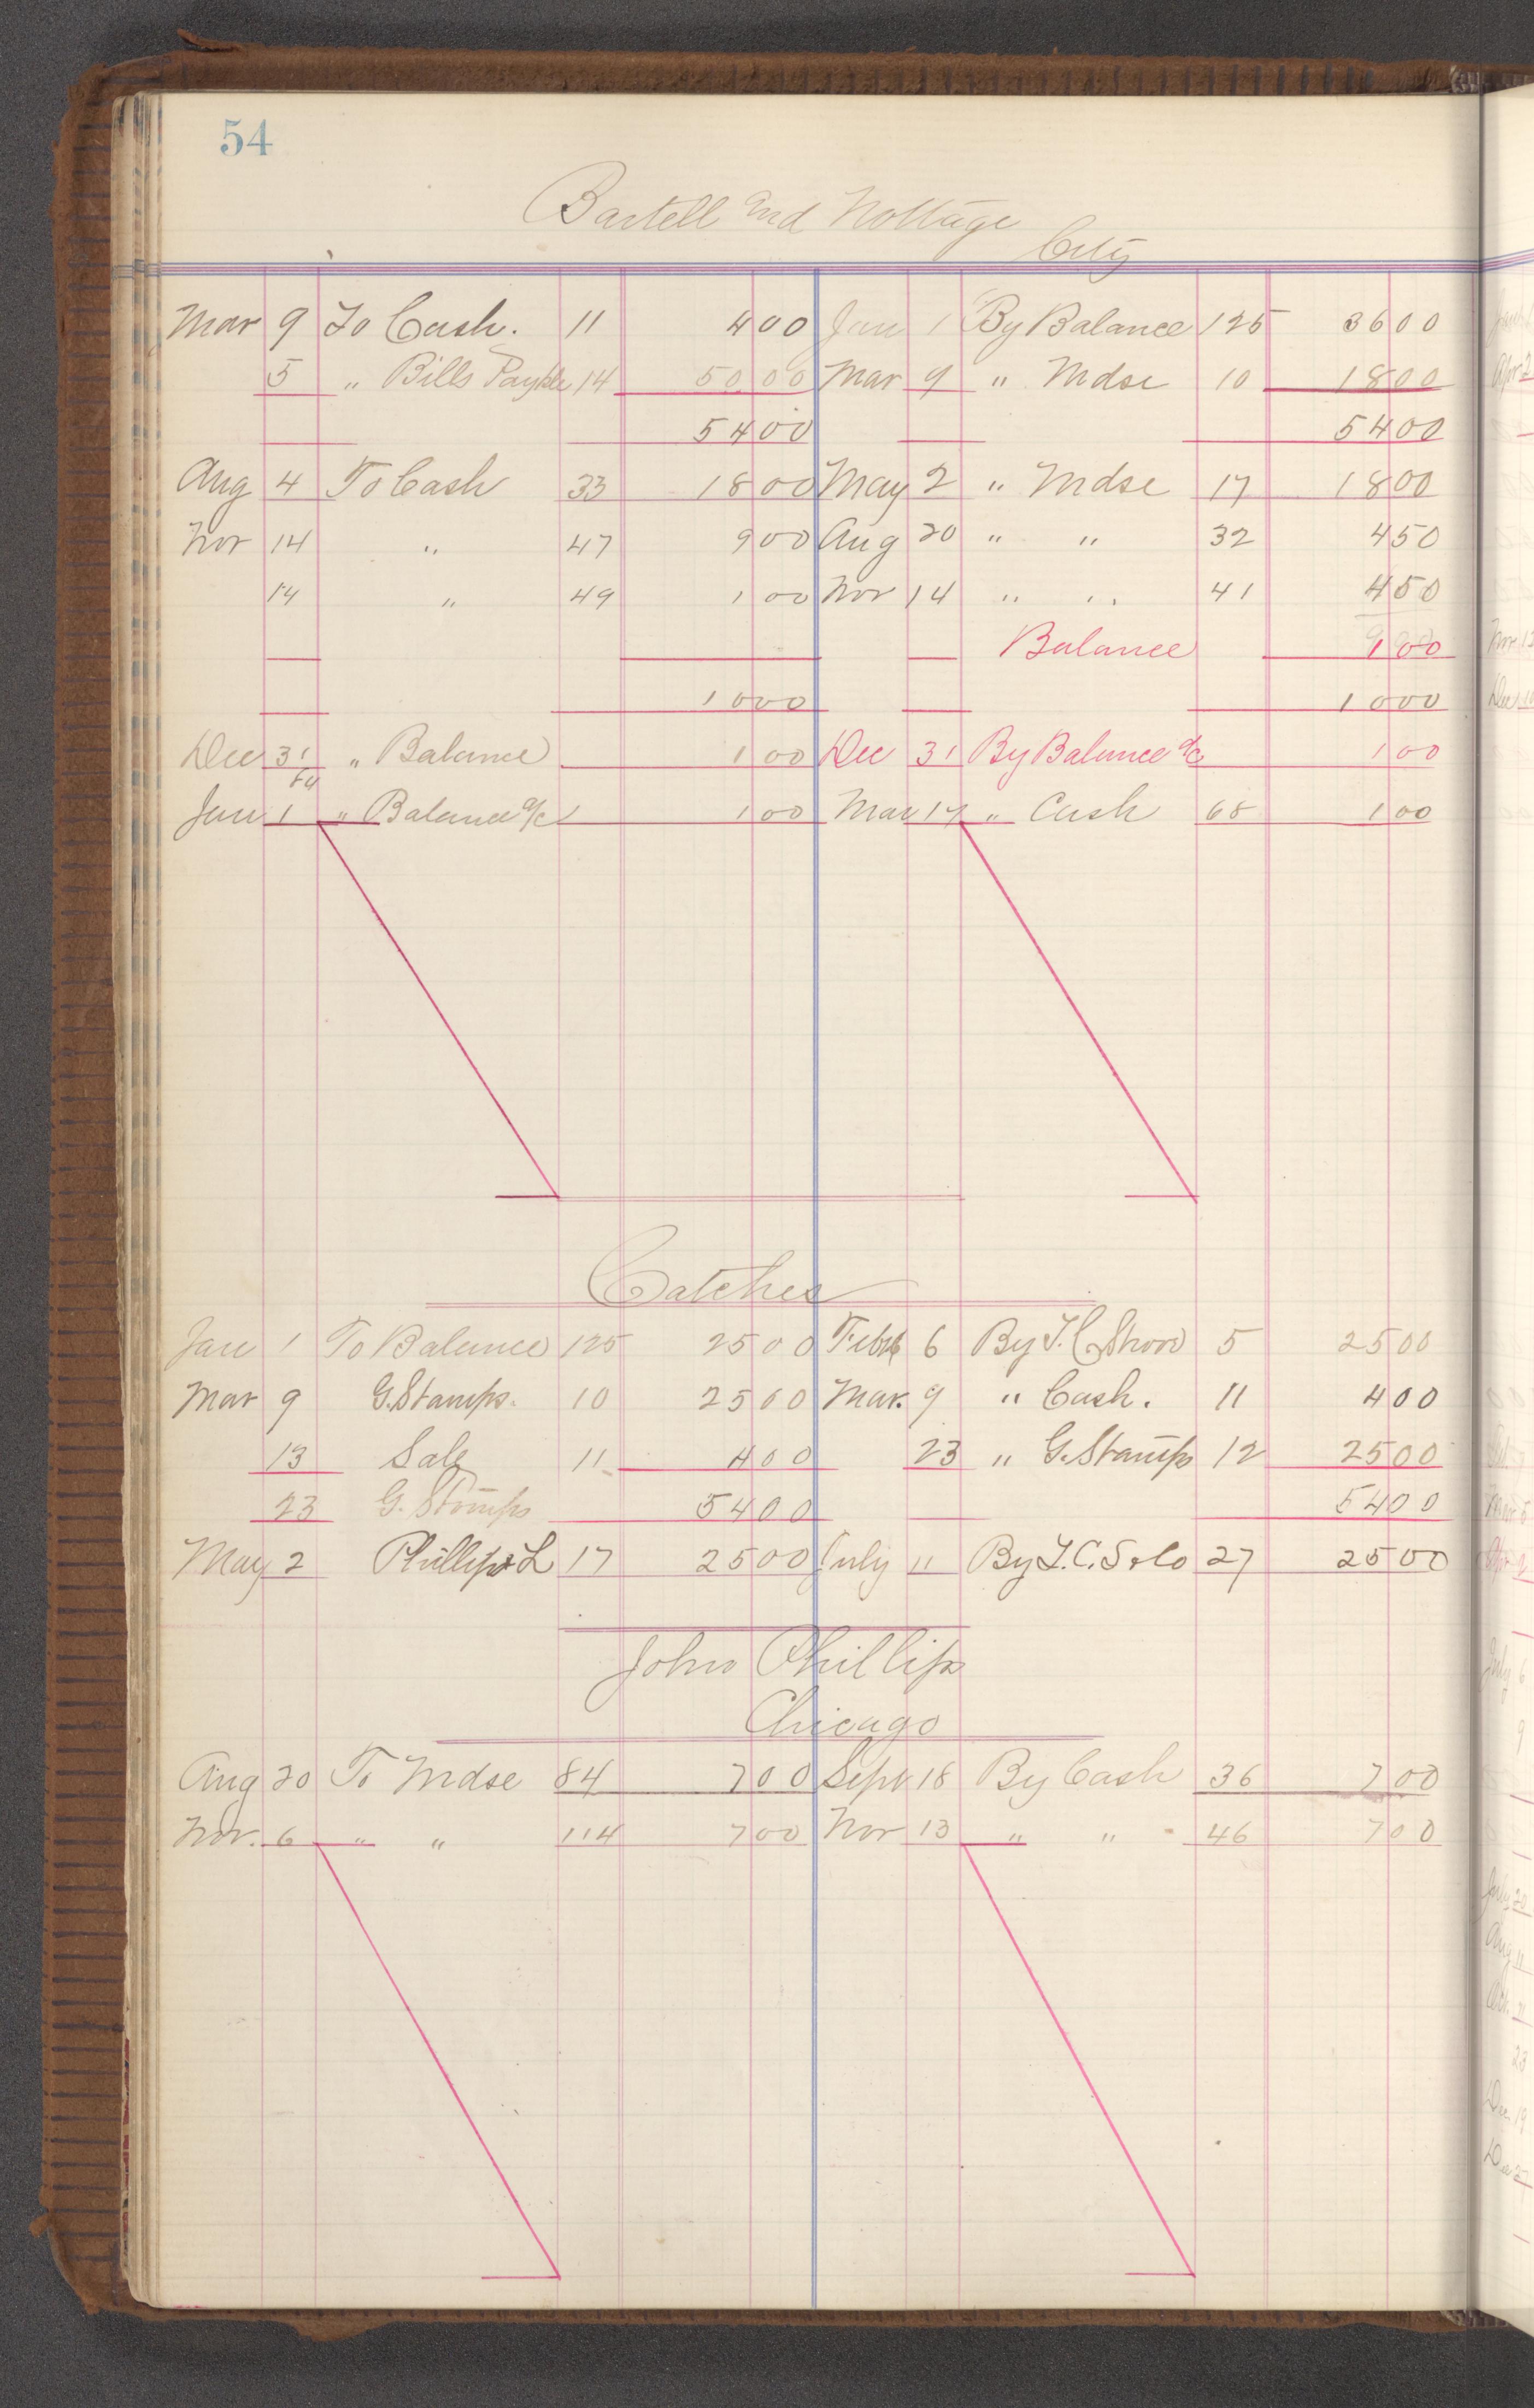 54
Bartell and Nottage
City
Mar 9 To Cash. 11 4 00 Jan 1 By Balance 125 36 00
5 " Bills Payble 14 50 00 Mar 9 " Mdse 10 18 00
54 00 54 00
Aug 4 To Cash 33 18 00 May 2 " Mdse 17 18 00
Nov 14 " 47 9 00 Aug 20 " " 32 4 50
14 " 49 1 00 Nov 14 " " 41 4 50
Balance 1 00
10 00 10 00
Dec 31 " Balance 1 00 Dec 31 By Balance a/c 1 00
Jan 1 " Balance a/c 1 00 Mar 17 " Cash 68 1 00
Catches
Jan 1 To Balance 125 25 00 Feb 6 By 5 25 00
Mar 9 G. Stamps. 10 25 00 Mar. 9 " Cash. 11 4 00
13 Sale 11 4 00 23 " G. Stamps 12 25 00
23 G. Stamps 54 00 54 00
May 2 Phillips & L 17 25 00 July 11 By T. C. S & Co 27 25 00
John Phillips
Chicago
Aug 20 To Mdse 84 7 00 Sept 18 By Cash 36 7 00
Nov. 6 " " 114 7 00 Nov 13 " " 46 7 00